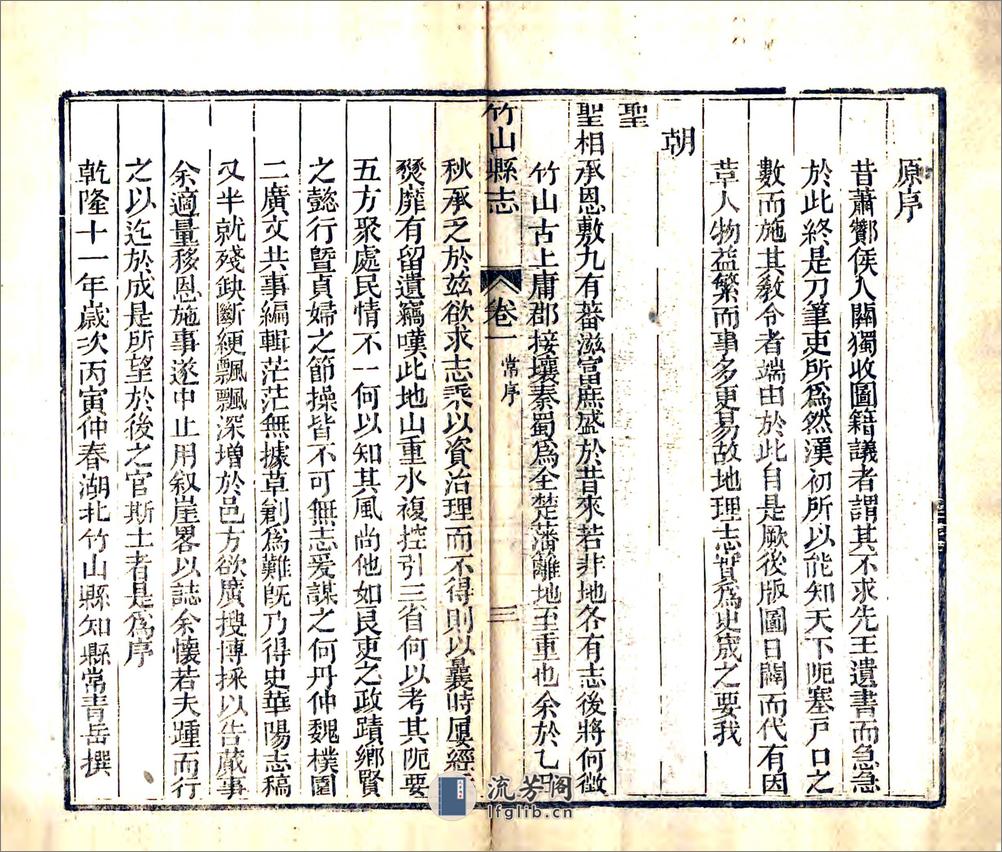 原序
昔蕭酇侯入關獨收圖籍議者謂其不求先王遺書而急急
於此終是刀筆吏所爲然漢初所以能知天下阨塞戸口之
數而施其敎令者端由於此自是厥後版圖日闢而代有因
革人物益繁而事多更易故地理志實爲史宬之要我
朝
聖
聖相承恩敷九有蕃滋富庶盛於昔來若非地各有志後將何徵
竹山古上庸郡接壤秦蜀爲全楚藩離地至重也余於乙
竹山縣志
卷一
常序
三
秋承乏於兹欲求志乘以資治理而不得則以曩時屢經
爕靡有留遺竊嘆此地山重水複控引三省何以考其阨要
五方聚處民情不一何以知其風尚他如良吏之政蹟鄉賢
之懿行曁貞婦之節操皆不可無志爰謀之何丹仲魏樸園
二廣文共事編輯茫茫無據草創爲難旣乃得史華陽志稿
又半就殘缺斷綆飄飄深增於邑方欲廣搜博採以告蕆事
余適量移恩施事遂中止用叙崖畧以誌余懷若夫踵而行
之以迄於成是所望於後之官斯土者是爲序
乾隆十一年歲次丙寅仲春湖北竹山縣知縣常青岳撰
流芳閣
lfglib.cn